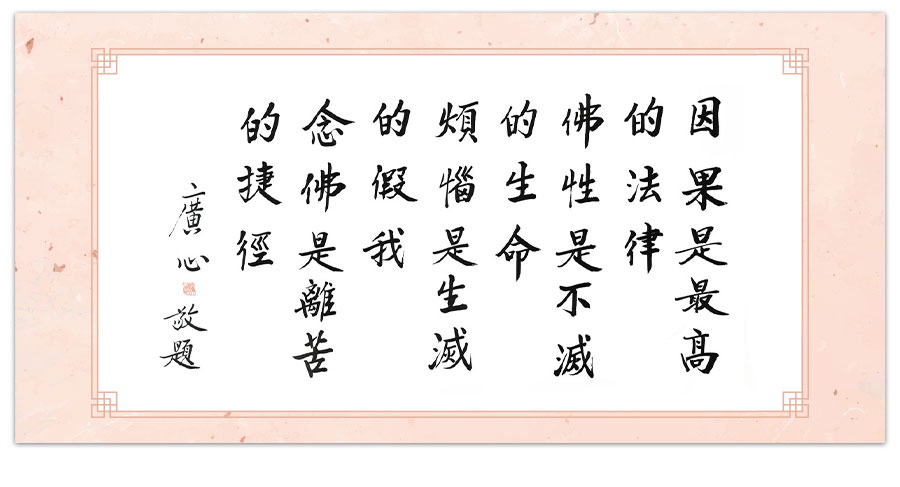 因果是最高
的法律
佛性是不滅
的生命
煩惱是生滅
的假我
念佛是離苦
的捷徑
廣心敬題